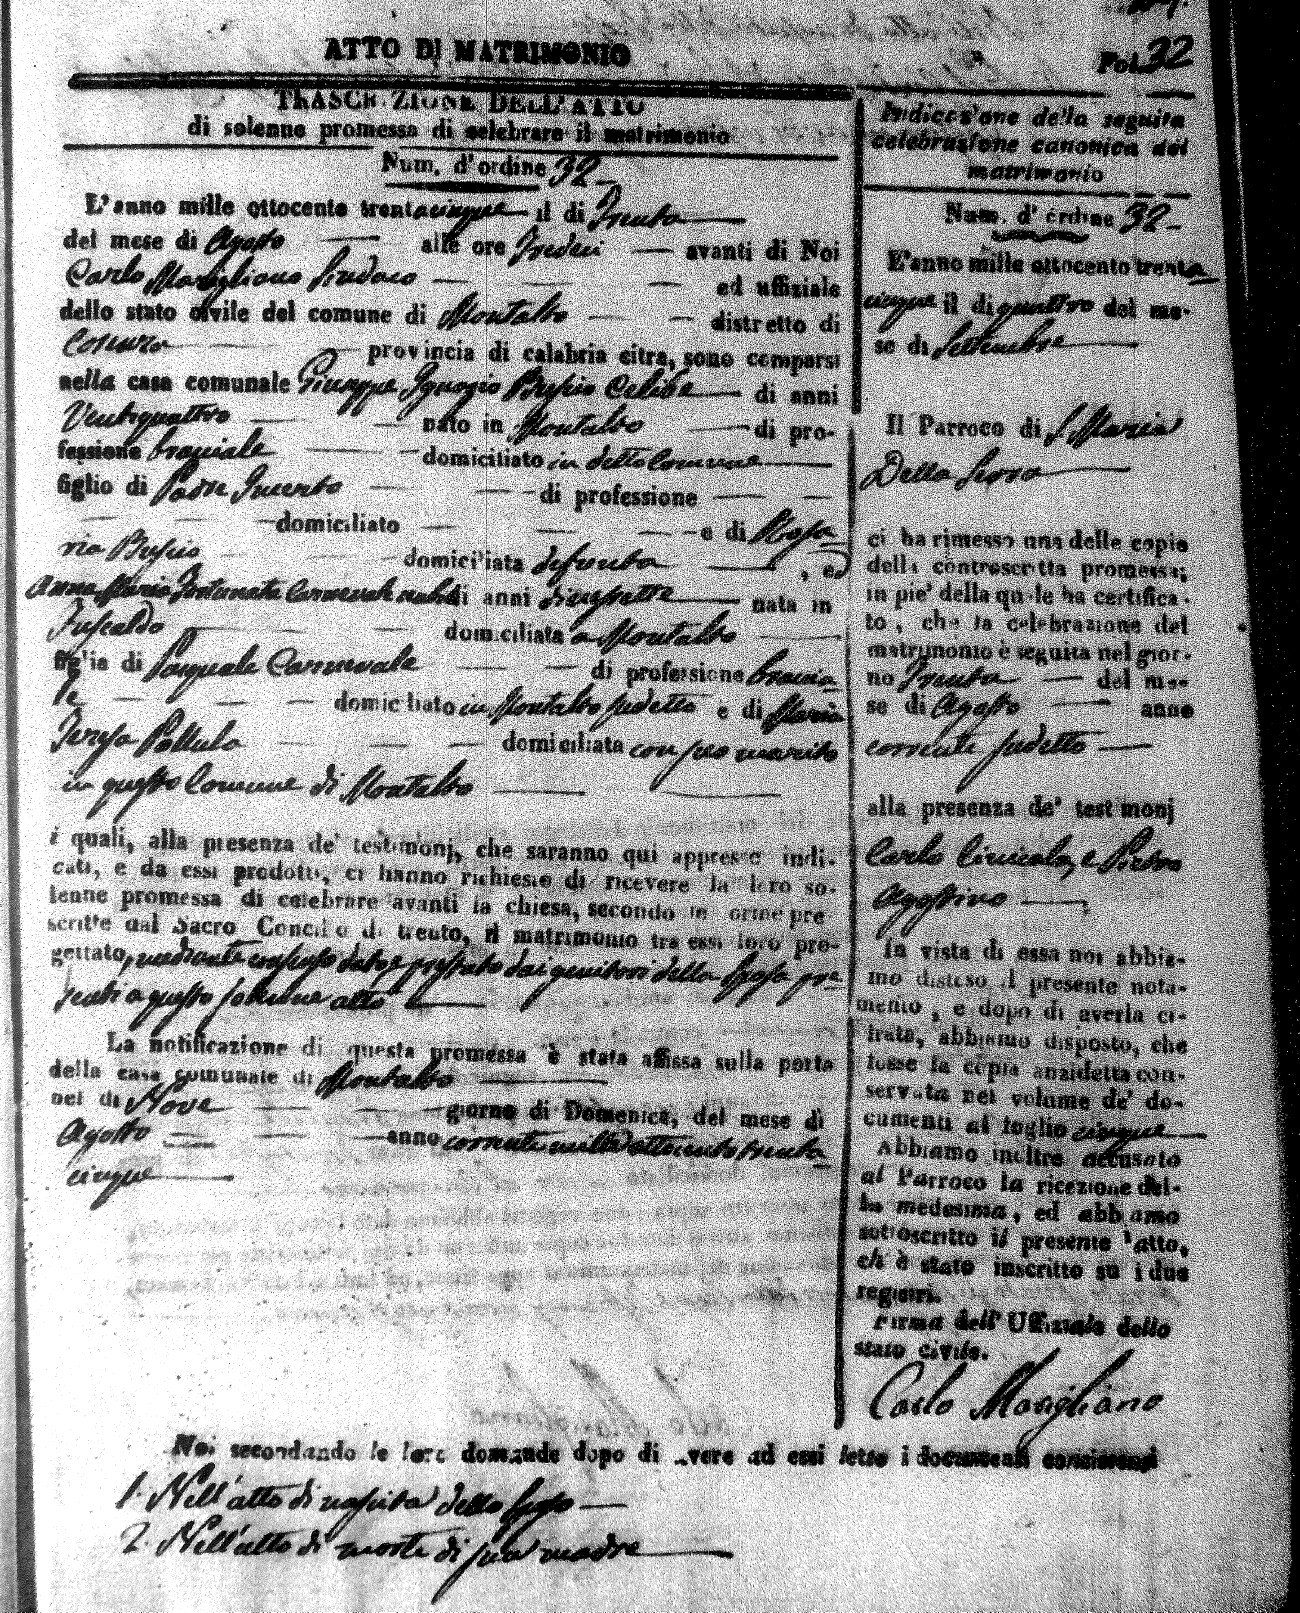 ATTO DI MATRIMONIO
Fol. 32
TRASCRIZIONE DELL'ATTO
di solenne promessa di celebrare il matrimonio
Num. d'ordine 32
L'anno mille ottocento trentacinque il di Trenta
del mese di Agosto alle ore Tredeci avanti di Noi
Carlo Marigliano Sindaco ed uffiziale
dello stato civile del comune di Montalto distretto di
Cosenza provincia di calabria citra, sono comparsi
nella casa comunale Giuseppe Ignazio Celibe di anni
Ventiquattro nato in Montalto di pro-
fessione bracciale domiciliato in detto Comune
figlio di Padre Incerto di professione
domiciliato e di Rosa
ria domiciliata defonta , ed
Anna Maria Fortunata Carnevale nubile di anni diecisette nata in
Fuscaldo domiciliata a Montalto
figlia di Pasquale Carnevale di professione braccia
le domiciliato in Montalto sudetto e di Maria
Teresa domiciliata con suo marito
in questo Comune di Montalto
i quali, alla presenza de' testimonj, che saranno qui appresso indi-
cati, e da essi prodotti, ci hanno richiesto di ricevere la loro so-
lenne promessa di celebrare avanti la chiesa, secondo le forme pre
scritte dal Sacro Concilio di trento, il matrimonio tra essi loro pro-
gettato, mediante consenso dato e prestato dai genitori della sposa pre
senti a questo solenne atto
La notificazione di questa promessa è stata affissa sulla porta
della casa comunale di Montalto
nel di Nove giorno di Domenica, del mese di
Agosto anno corrente mille ottocento trenta
cinque
Indicazione della seguita
celebrazione canonica del
matrimonio
Num. d'ordine 32
L'anno mille ottocento trenta
cinque il di quattro del me-
se di Settembre
Il Parroco di S. Maria
Della Serra
ci ha rimesso una delle copie
della controscritta promessa;
in pie' della quale ha certifica-
to, che la celebrazione del
matrimonio è seguita nel gior-
no Trenta del me-
se di Agosto anno
corrente sudetto
alla presenza de' testimonj
Carlo e Pietro
Agostino
In vista di essa noi abbia-
mo disteso il presente nota-
mento, e dopo di averla ci-
frata, abbiamo disposto, che
fosse la copia anzidetta con-
servata nel volume de' do-
cumenti al foglio cinque
Abbiamo inoltre accusato
al Parroco la ricezione del-
la medesima, ed abbiamo
sottoscritto il presente atto,
ch'è stato inscritto su i due
registri.
Firma dell'Uffiziale dello
stato civile.
Carlo Marigliano
Noi secondando le loro domande dopo di avere ad essi letto i documenti consistenti
1. Nell'atto di nascita dello sposo
2. Nell'atto di morte di sua madre